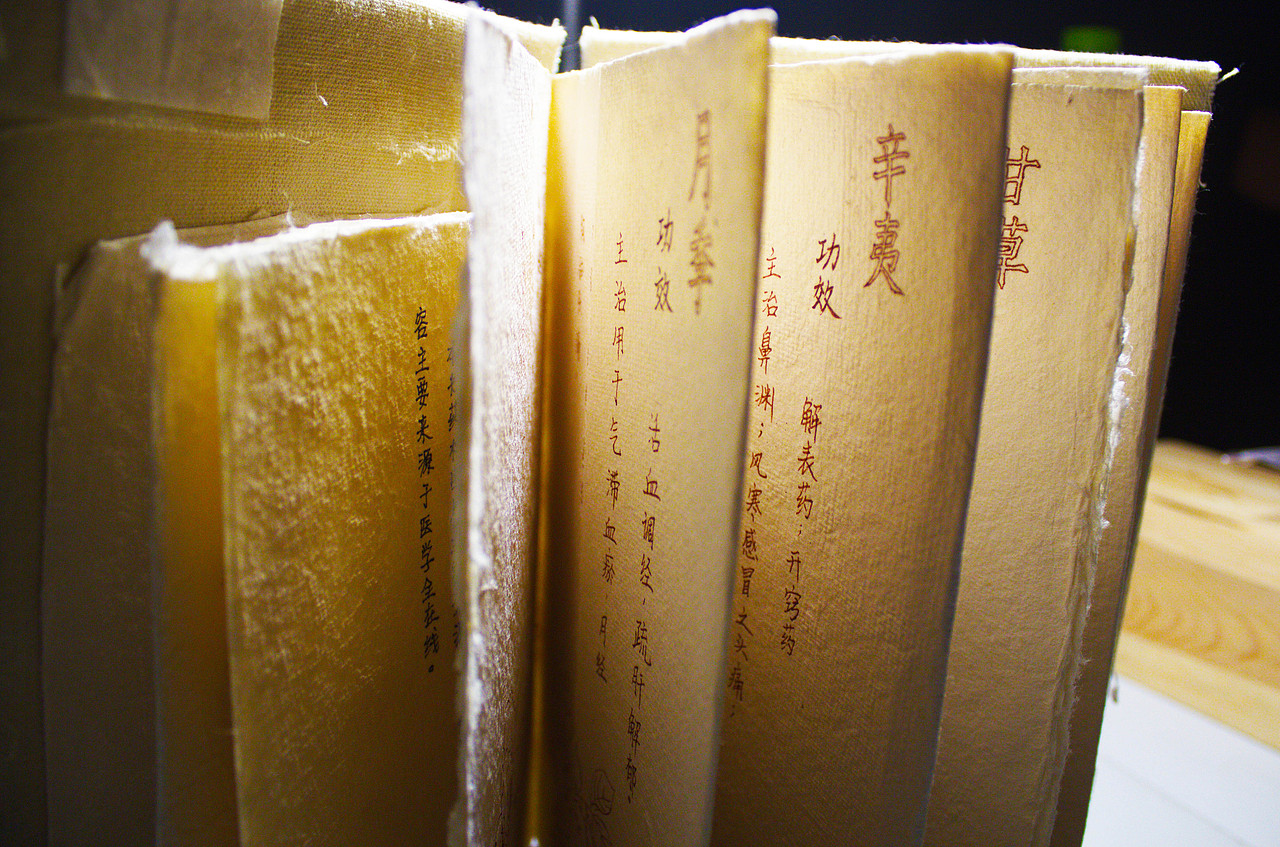 甘草
辛夷
功效 解表药；开窍药
主治鼻渊；风寒感冒之头痛；
月季
功效 活血调经，疏肝解郁
主治用于气滞血瘀，月经
容主要来源于医学全在线。